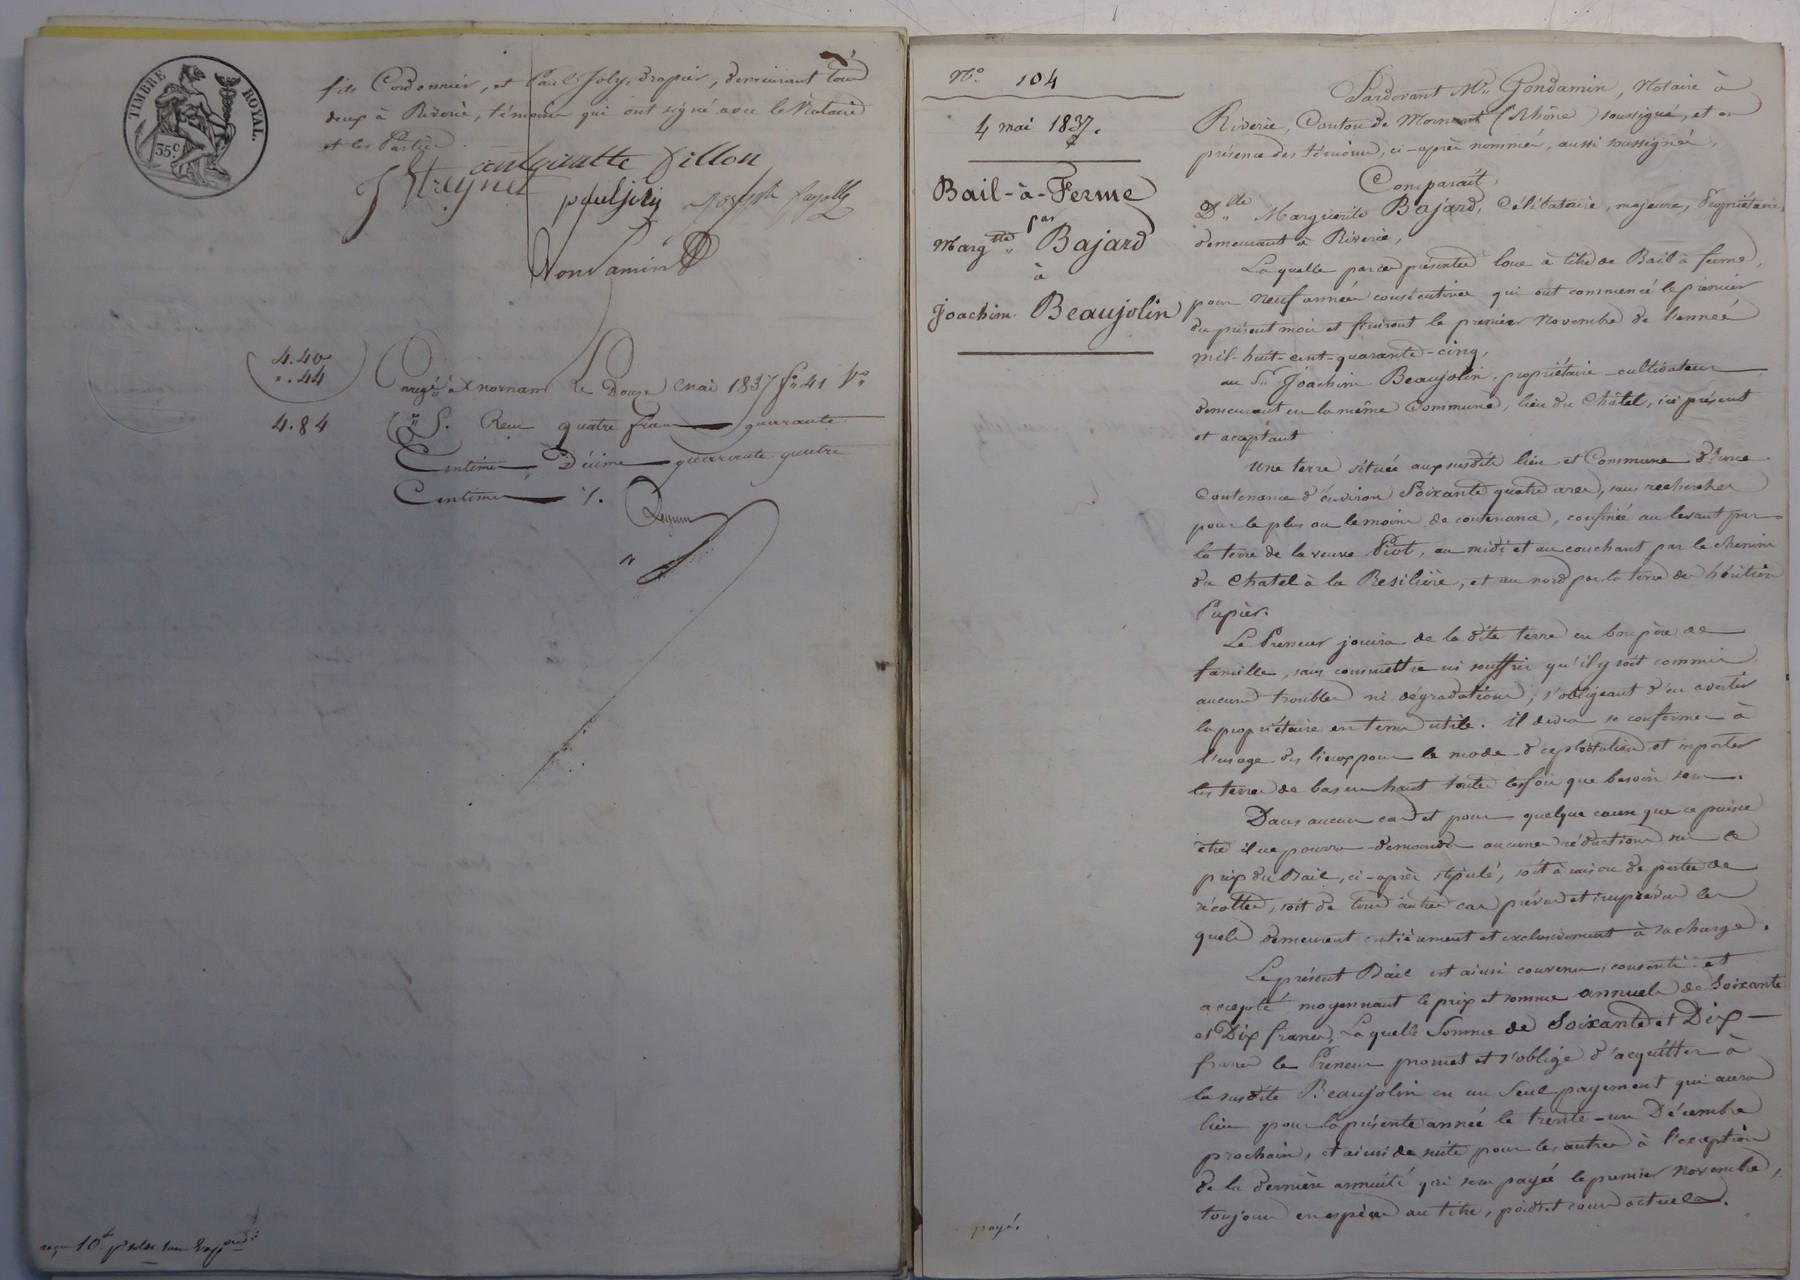 TIMBRE ROYAL.
35 c
fils Cordonnier, et Paul Joly, drapier, demeurant tous
deux à Riverie, témoins qui ont signé avec le Notaire
et les Parties.
antoinette Pillou
J Streynet
paul joly joseph fayolle
Gondamin
4.40
".44
4.84
Enregé à Mornant le Douze mai 1837 fo 41 Vo
Reçu quatre francs quarante
Centimes, Décime quarante quatre
Centimes
No 104
4 mai 1837.
Bail-à-Ferme
par
Margtte Bajard
à
Joachim Beaujolin
Pardevant Me Gondamin, Notaire à
Riverie, Canton de Mornant (Rhône) soussigné, et en
présence des témoins, ci-après nommés, aussi soussignés,
Comparaît,
Dlle Marguerite Bajard, Célibataire, majeure, Propriétaire,
demeurant à Riverie,
Laquelle par ces présentes loue à titre de Bail à ferme,
pour neuf années consécutives qui ont commencé le premier
du présent mois et finiront le premier novembre de l'année
mil-huit-cent-quarante-cinq,
au Sr Joachim Beaujolin, propriétaire-cultivateur
demeurant en la même Commune, lieu du Châtel, ici présent
et acceptant
Une terre située aux susdits lieu et Commune d'une
Contenance d'environ Soixante quatre ares, sans rechercher
pour le plus ou le moins de contenance, confinée au levant par
la terre de la veuve Piot, au midi et au couchant par le chemin
du Chatel à la Resilière, et au nord par la terre des héritiers
Pupier.
Le Preneur jouira de la dite terre en bon père de
famille, sans commettre ni souffrir qu'il y soit commis
aucuns troubles ni dégradations, s'obligeant d'en avertir
la propriétaire en tems utile. il devra se conformer à
l'usage des lieux pour le mode d'exploitation et reporter
les terres de bas en haut toutes les fois que besoin sera.
Dans aucun cas et pour quelque cause que ce puisse
être il ne pourra demander aucune réduction sur le
prix du Bail, ci-après stipulé, soit à raison de pertes de
récoltes, soit de tous autres cas prévus et imprévus les
quels demeurent entièrement et exclusivement à sa charge.
Le présent Bail est ainsi convenu, consenti et
accepté moyennant le prix et somme annuels de Soixante
et Dix francs, Laquelle Somme de Soixante et Dix
francs le Preneur promet et s'oblige d'acquitter à
la susdite Beaujolin en un seul payement qui aura
lieu pour la présente année le trente-un Décembre
prochain, et ainsi de suite pour les autres à l'exception
de la dernière annuité qui sera payée le premier novembre,
toujours en espèces au titre, poids et cours actuels.
payé.